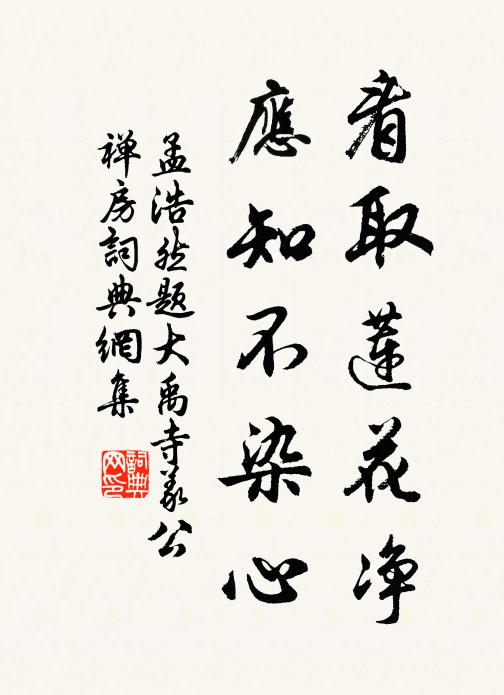 看取蓮花净
應知不染心
孟浩然題大禹寺義公
禅房詞典網集
詞典网印